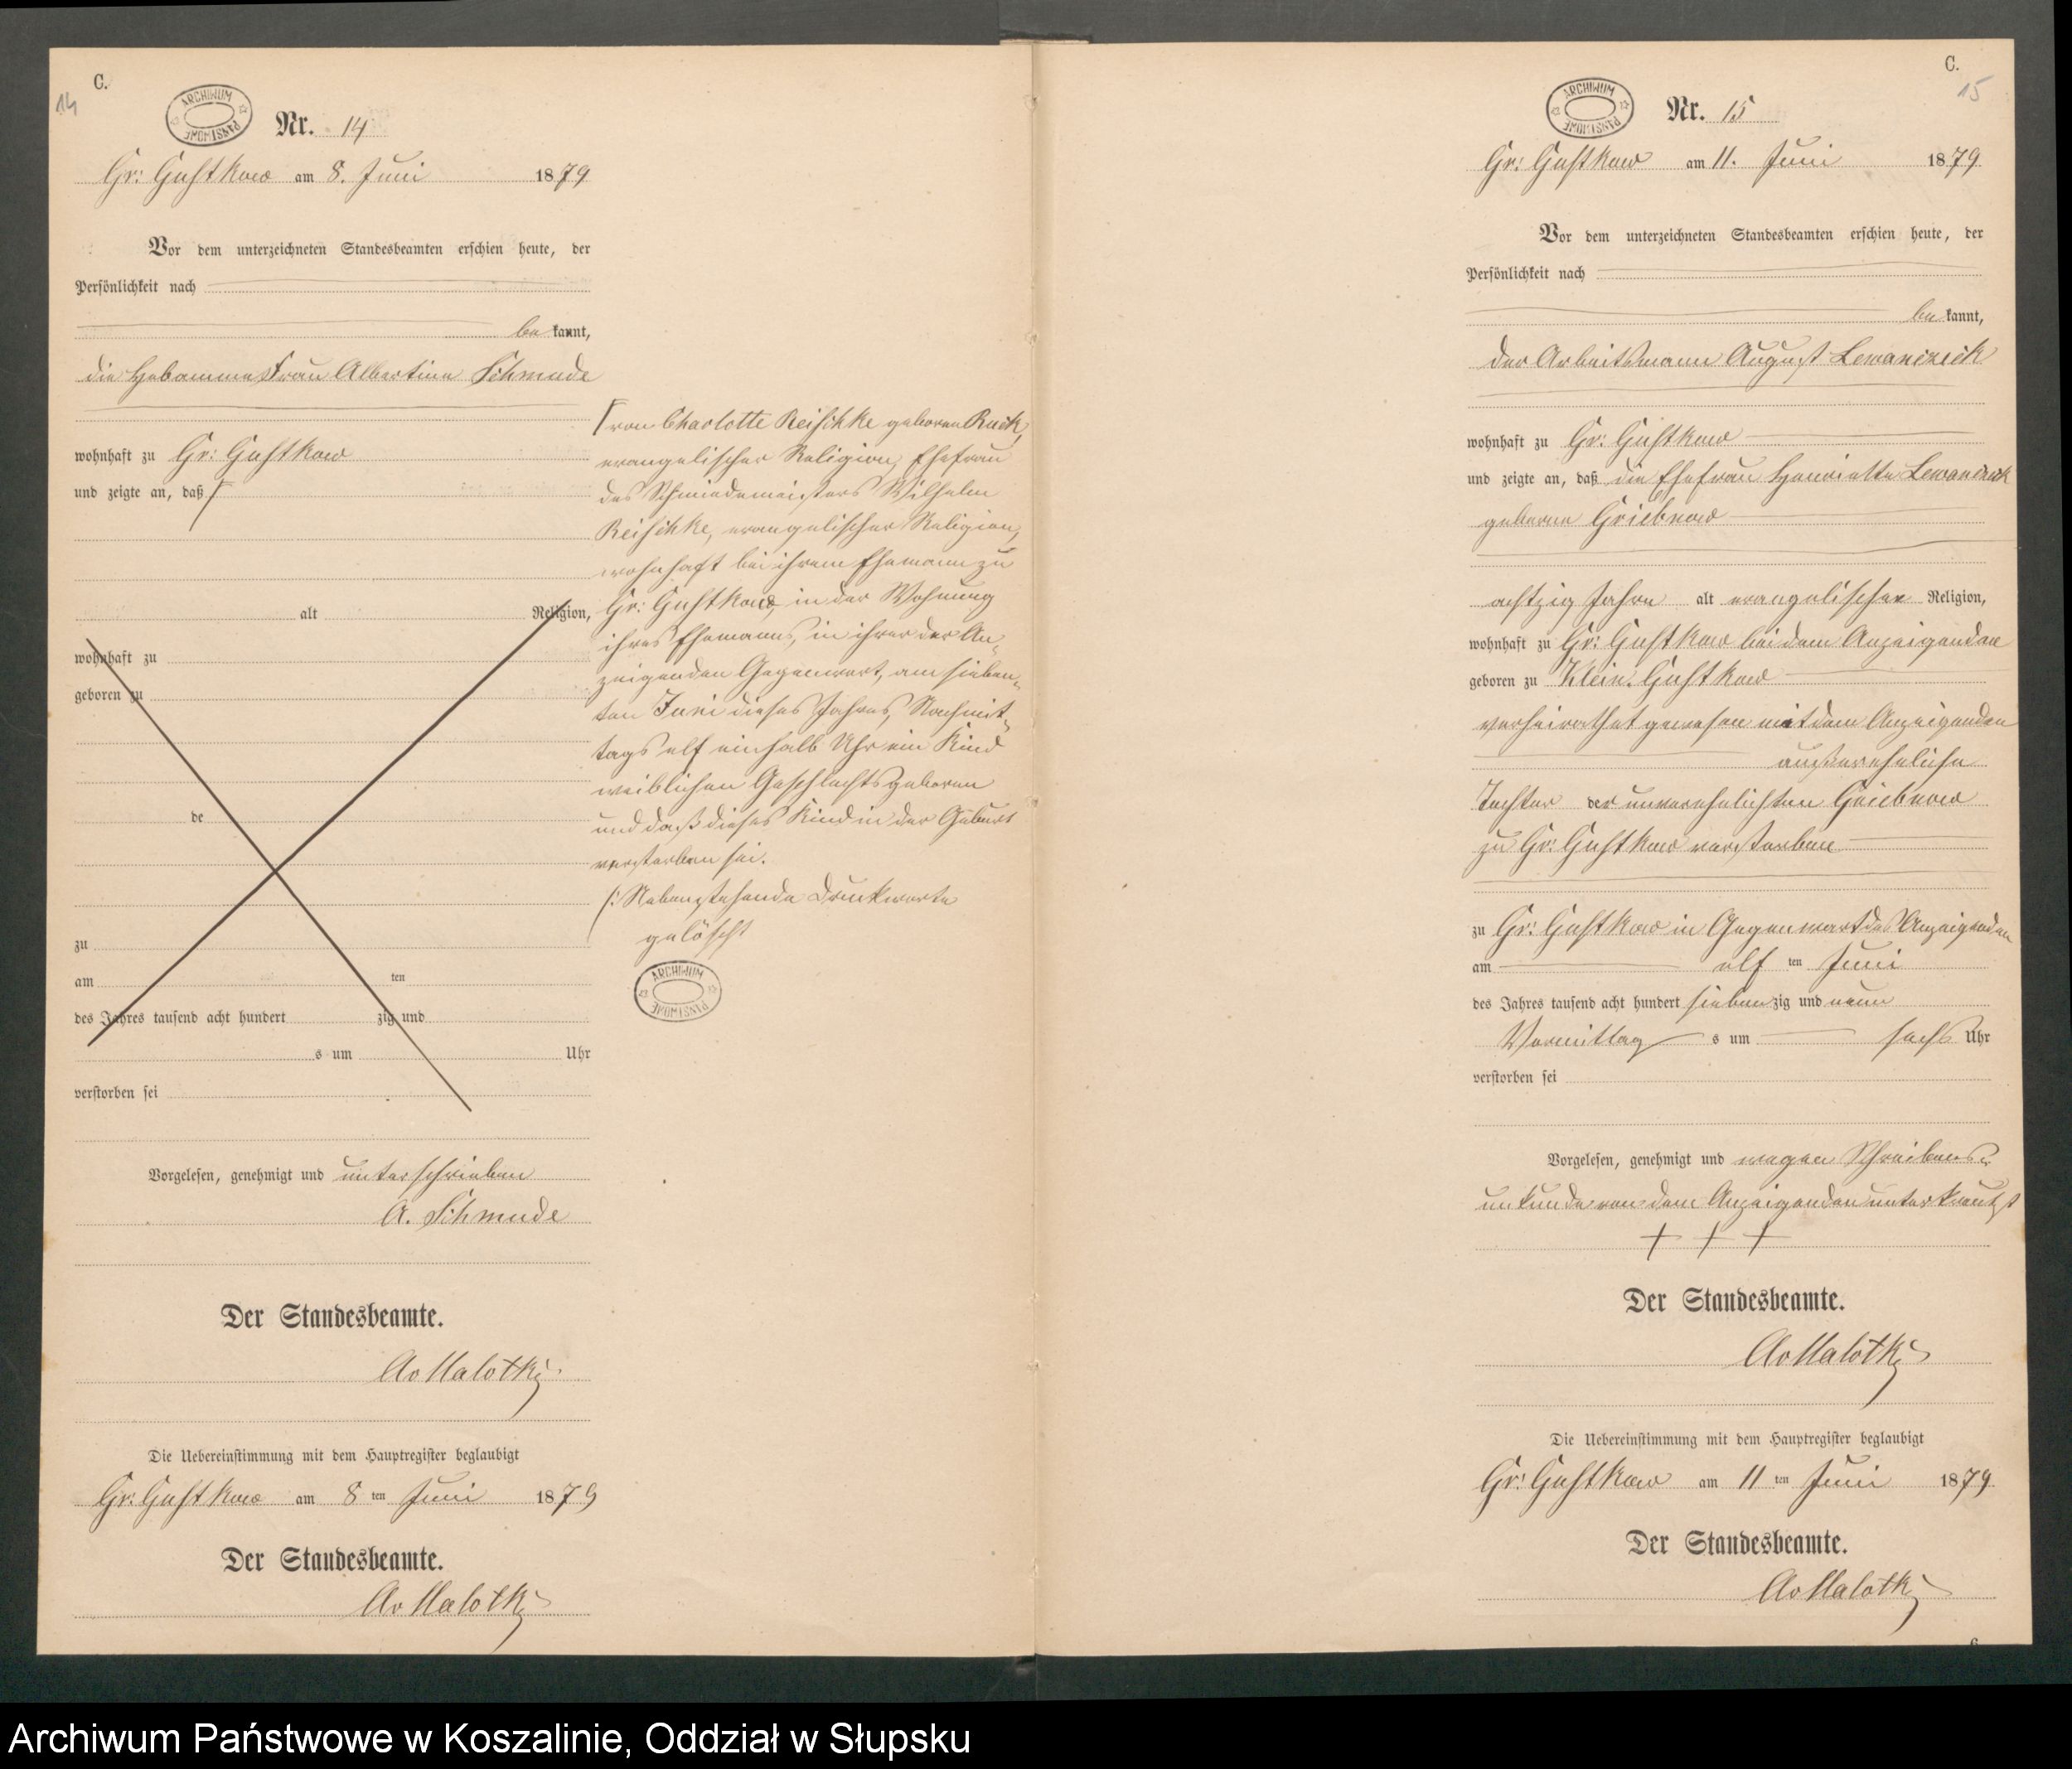 C.
14
ARCHIWUM PAŃSTWOWE
Nr. 14
Gr: Gustkow am 8. Juni 1879
Vor dem unterzeichneten Standesbeamten erschien heute, der
Persönlichkeit nach
be kannt,
die Hebamme Frau Albertine Schmude
wohnhaft zu Gr: Gustkow
und zeigte an, daß
alt Religion,
wohnhaft zu
geboren zu
de
zu
am ten
des Jahres tausend acht hundert zig und
s um Uhr
verstorben sei
von Charlotte Reischke geborene Ruck,
evangelischer Religion, Ehefrau
des Schmiedemeisters Wilhelm
Reischke, evangelischer Religion,
wohnhaft bei ihrem Ehemann zu
Gr: Gustkow, in der Wohnung
ihres Ehemanns, in ihrer der An-
zeigenden Gegenwart, am sieben-
ten Juni dieses Jahres, Nachmit-
tags elf einhalb Uhr ein Kind
weiblichen Geschlechts geboren
und daß dieses Kind in der Geburt
verstorben sei.
/: Nebenstehende Druckworte
gelöscht
ARCHIWUM PAŃSTWOWE
Vorgelesen, genehmigt und unterschrieben
A. Schmude
Der Standesbeamte.
Av Malotki
Die Uebereinstimmung mit dem Hauptregister beglaubigt
Gr: Gustkow am 8 ten Juni 1879
Der Standesbeamte.
Av Malotki
C.
15
ARCHIWUM PAŃSTWOWE
Nr. 15
Gr: Gustkow am 11. Juni 1879
Vor dem unterzeichneten Standesbeamten erschien heute, der
Persönlichkeit nach
be kannt,
der Arbeitsmann August Lewanczick
wohnhaft zu Gr: Gustkow
und zeigte an, daß die Ehefrau Henriette Lewanczick
geborne Griebnow
achtzig Jahre alt evangelischer Religion,
wohnhaft zu Gr: Gustkow bei dem Anzeigenden
geboren zu Klein Gustkow
verheirathet gewesen mit dem Anzeigenden
außereheliche
Tochter der unverehelichten Griebnow
zu Gr: Gustkow verstorben
zu Gr: Gustkow in Gegenwart des Anzeigenden
am elf ten Juni
des Jahres tausend acht hundert sieben zig und neun
Vormittag s um sechs Uhr
verstorben sei
Vorgelesen, genehmigt und wegen Schreibens-
unkunde von dem Anzeigenden unterkreutzt
+ + +
Der Standesbeamte.
Av Malotki
Die Uebereinstimmung mit dem Hauptregister beglaubigt
Gr: Gustkow am 11 ten Juni 1879
Der Standesbeamte.
Av Malotki
Archiwum Państwowe w Koszalinie, Oddział w Słupsku